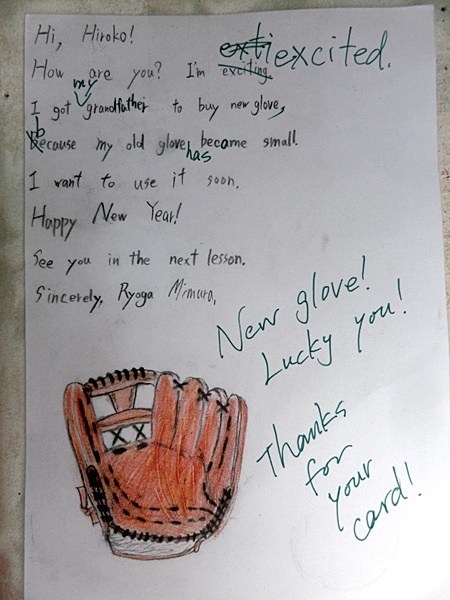 Hi, Hiroko!
exti excited.
How are you? I'm exciting.
my
I got grandfather to buy new glove,
b
Because my old glove became small.
has
I want to use it soon.
Happy New Year!
See you in the next lesson.
Sincerely, Ryoga Mimura,
New glove!
Lucky you!
Thanks
for
your
card!